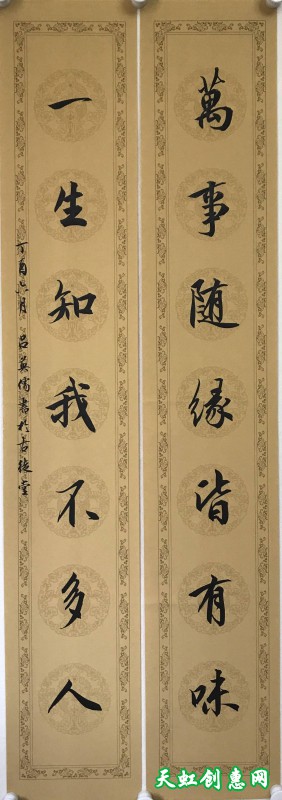 萬事随缘皆有味
一生知我不多人
丁酉六月 吕英儒書於古緣堂
天虹创惠网